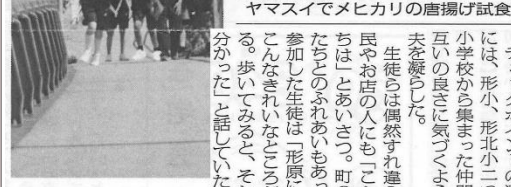 ヤマスイでメヒカリの唐揚げ試食
には、形小、形北小二つ
小学校から集まった仲間
互いの良さに気づくよう
夫を凝らした。
生徒らは偶然すれ違う
民やお店の人にも「こ
ちは」とあいさつ。町の
たちとのふれあいもあっ
参加した生徒は「形原に
こんなきれいなところが
る。歩いてみると、そ
分かった」と話していた